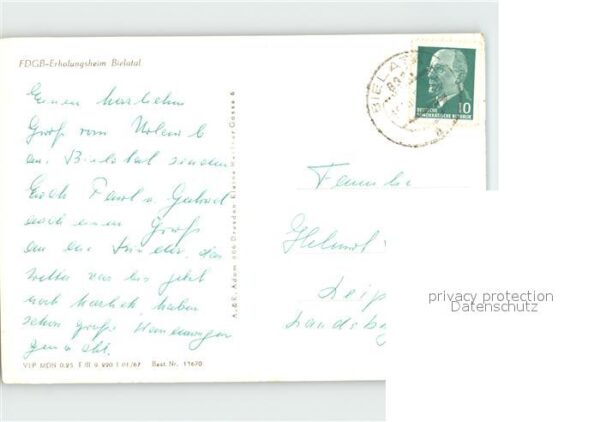 FDGB-Erholungsheim Bielatal
Einen herzlichen
Gruß vom Urlaub
im Bielatal senden
Euch u. Gabriel
noch einen Gruß
an die Kinder, das
Wetter war bis jetzt
noch herrlich, haben
schon große Wanderungen
gemacht.
VLP MDN 0.25 F III 9 990 1 01/67 Best.Nr. 11670
A.&R. Adam 806 Dresden Kleine Meißner Gasse 6
BIELATAL
10
DEUTSCHE
DEMOKRATISCHE REPUBLIK
Familie
Helmut
Leip
Landsb
privacy protection
Datenschutz